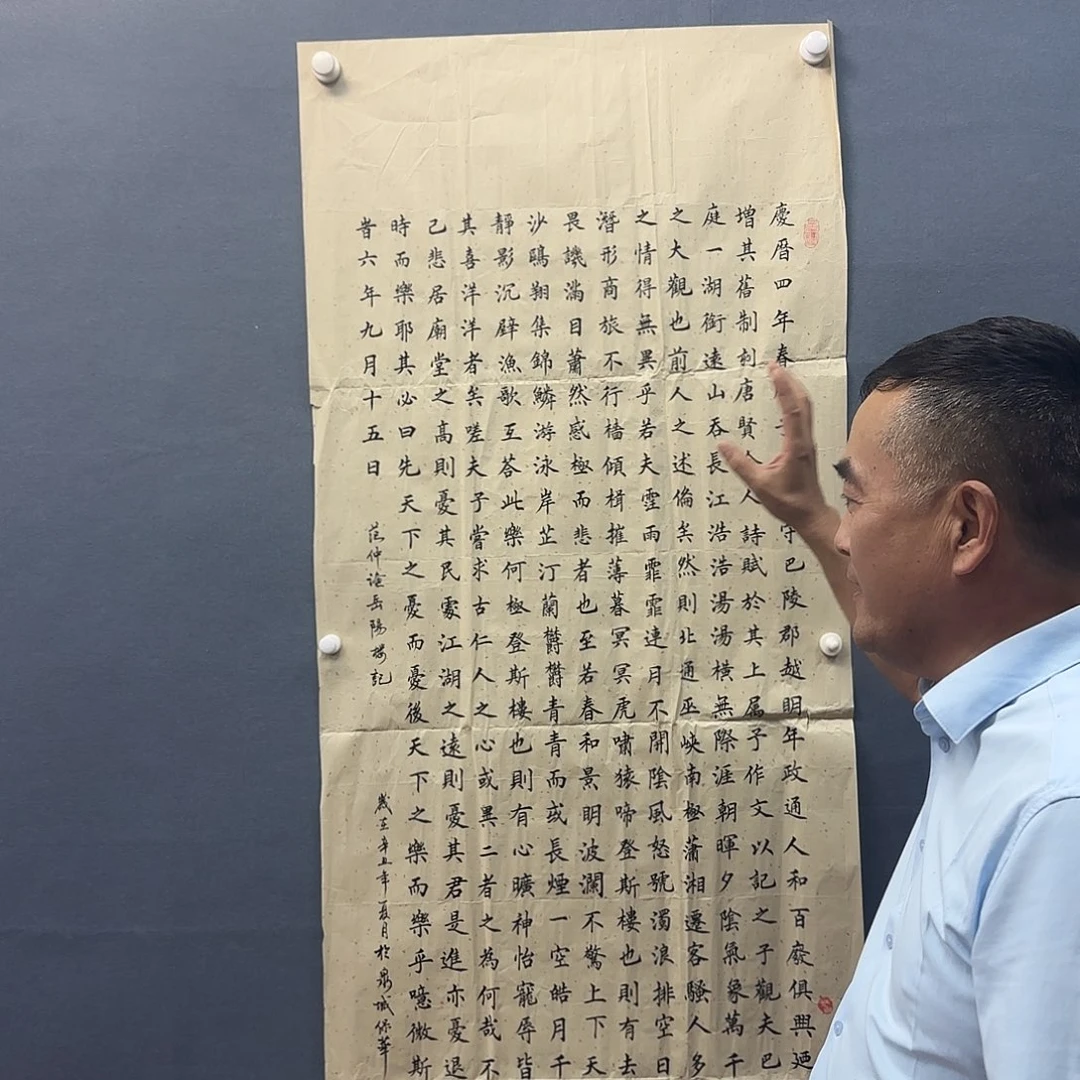 慶曆四年春守巴陵郡越明年政通人和百廢俱興廼
增其舊制刻唐賢人詩賦於其上属予作文以記之予觀夫巴
庭一湖銜遠山吞長江浩浩湯湯橫無際涯朝暉夕陰氣象萬千
之大觀也前人之述備矣然則北通巫峽南極瀟湘遷客騷人多
之情得無異乎若夫霪雨霏霏連月不開陰風怒號濁浪排空日
潛形商旅不行檣傾楫摧薄暮冥冥虎嘯猿啼登斯樓也則有去
畏譏滿目蕭然感極而悲者也至若春和景明波瀾不驚上下天
沙鷗翔集錦鱗游泳岸芷汀蘭鬱鬱青青而或長煙一空皓月千
靜影沉璧漁歌互荅此樂何極登斯樓也則有心曠神怡寵辱皆
其喜洋洋者矣嗟夫予嘗求古仁人之心或異二者之為何哉不
己悲居廟堂之高則憂其民處江湖之遠則憂其君是進亦憂退
時而樂耶其必曰先天下之憂而憂後天下之樂而樂乎噫微斯
旹六年九月十五日
范仲淹岳陽樓記
歲在辛丑年夏月於鼎城保華